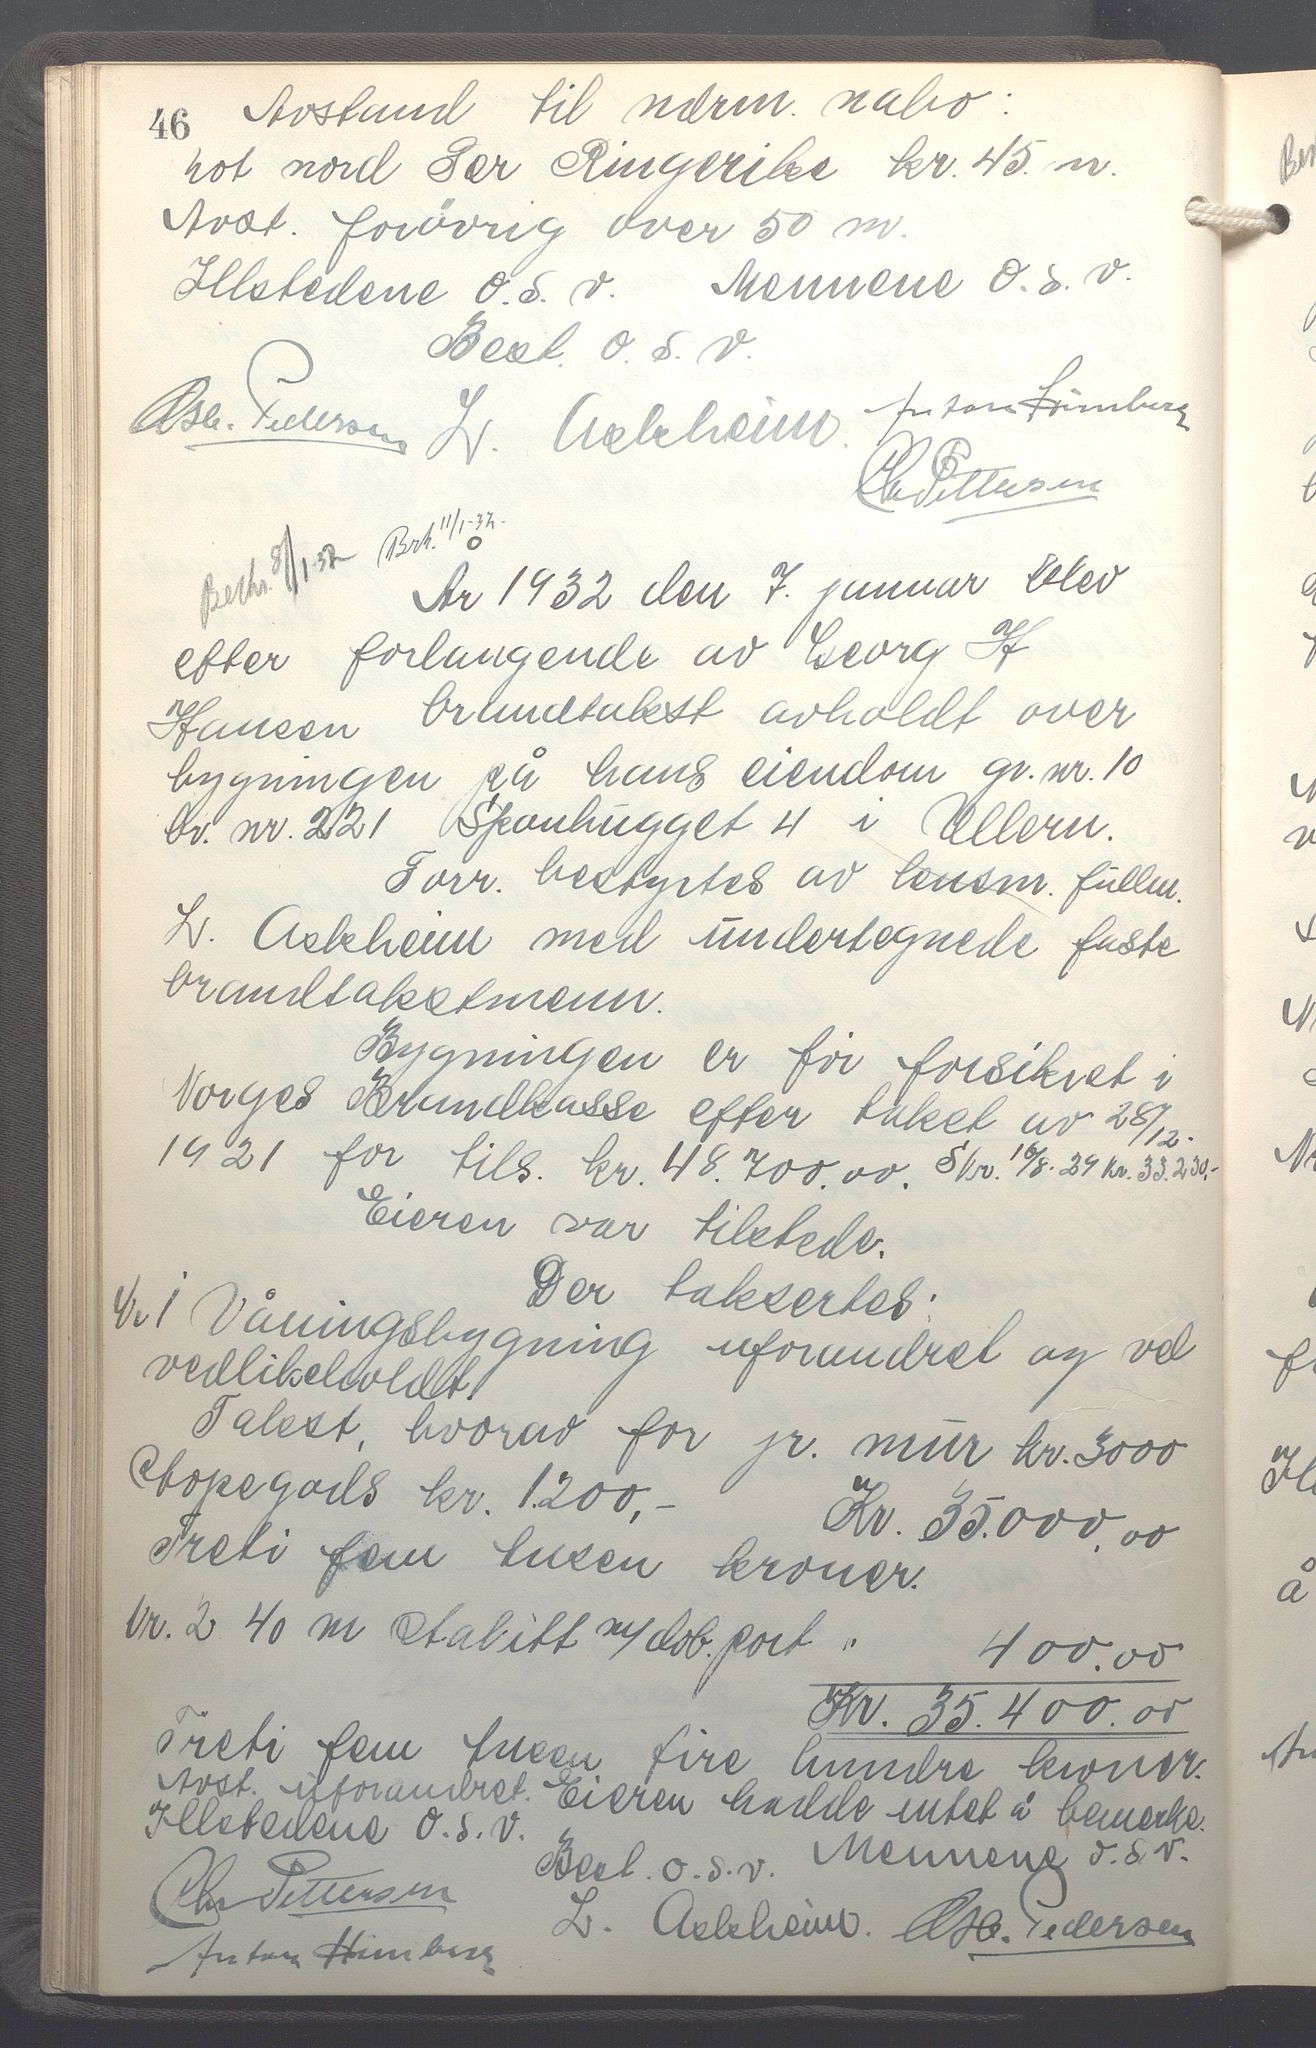 46 Avstand til nærm. nabo:
mot nord Per Ringerike kr. 45. m.
Avst. forøvrig over 50 m.
Ildstedene o.s.v. Mennene o.s.v.
Best. o.s.v.
Osc. Pedersen L. Askheim. Anton Himberg
Chr Pettersen
Bethr. 8/1-32 Brk. 11/1-32-
År 1932 den 7. januar blev
efter forlangende av Georg H
Hansen brandtakst avholdt over
bygningen på hans eiendom gr. nr. 10
br. nr. 221 Sponhugget 4 i Ullern.
Forr. bestyrtes av lensm. fullm.
L. Askheim med undertegnede faste
brandtakstmenn.
Bygningen er før forsikret i
Norges Brandkasse efter takst av 28/12-
1921 for tils. kr. 48.700.00. Skr. 16/8-29 kr. 33.230,-
Eieren var tilstede.
Der taksertes:
Nr 1 Våningsbygning uforandret og vel
vedlikeholdt.
Takst, hvorav for gr. mur kr. 3000
støpegods kr. 1.200,- Kr. 35.000,00
Treti fem tusen kroner.
Nr. 2 40 m stakitt m/dob. port " 400.00
Kr. 35.400.00
Treti fem tusen fire hundre kroner.
Avst. uforandret. Eieren hadde intet å bemerke.
Ildstedene o.s.v.
Best. o.s.v. Mennene o.s.v.
Chr Pettersen
L. Askheim. Osc. Pedersen
Anton Himberg